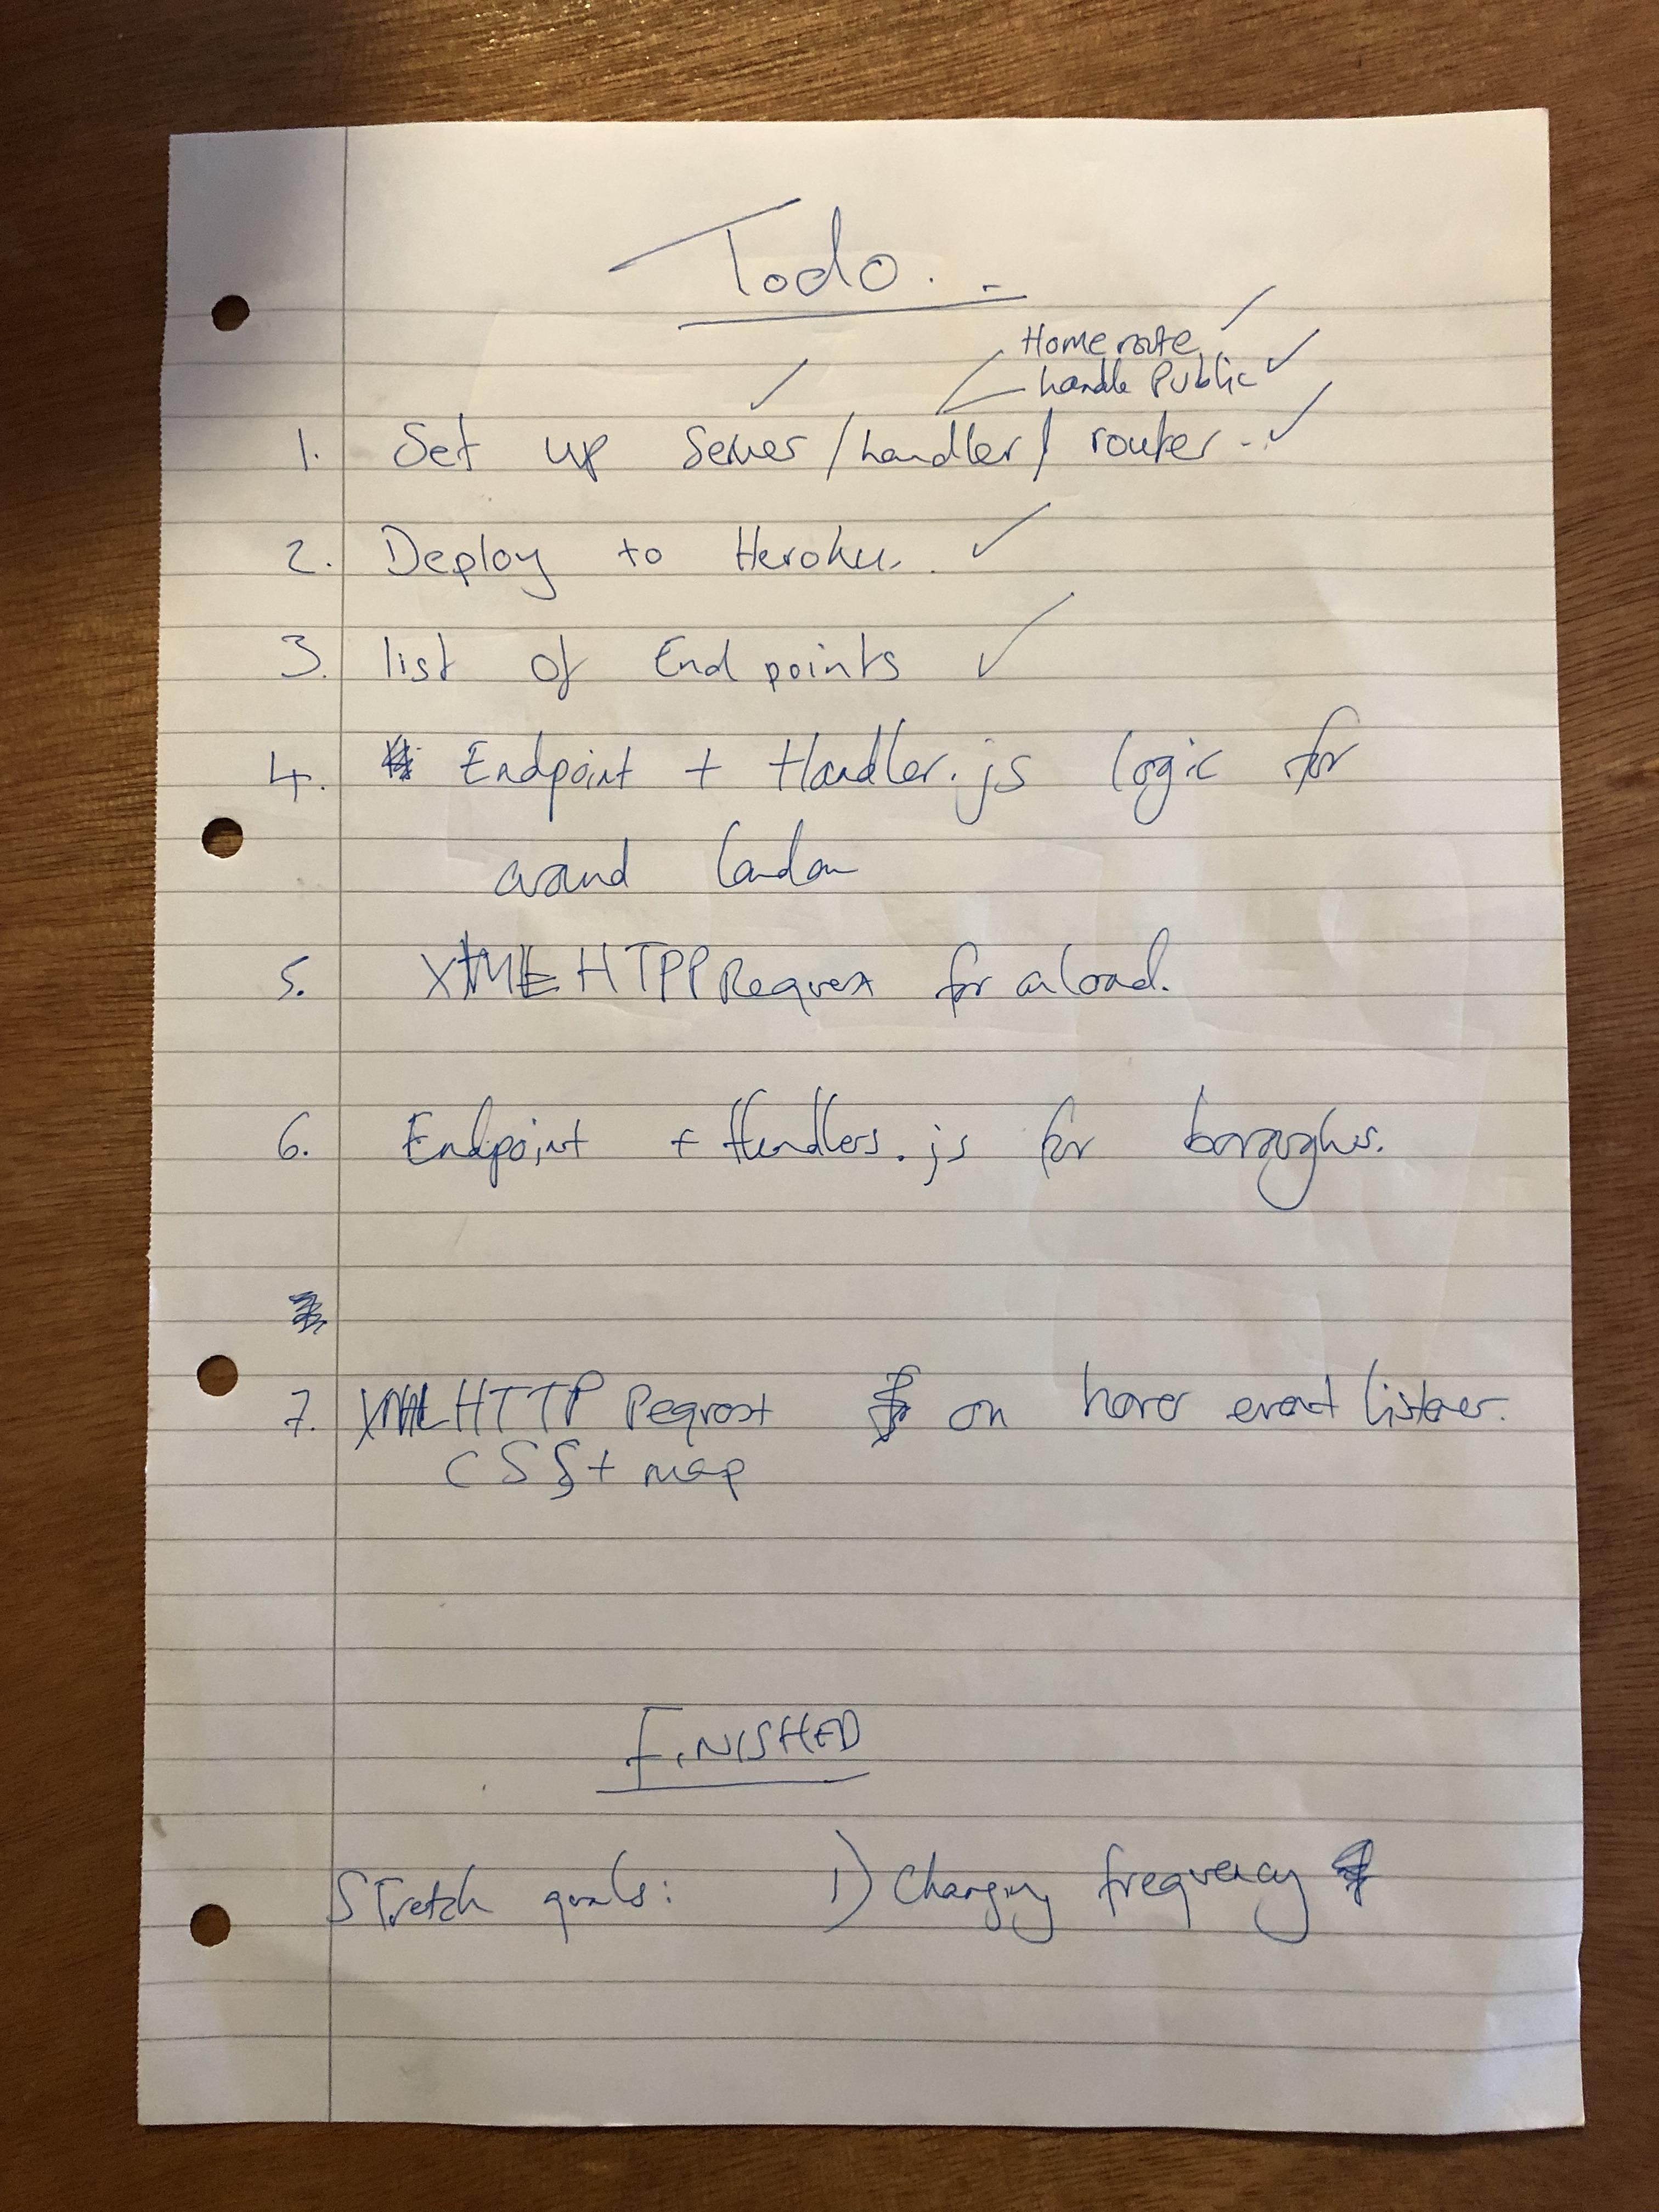 Todo.
Home route ✓
handle Public ✓
1. Set up Server ✓ / handler / router. ✓
2. Deploy to Heroku. ✓
3. list of End points ✓
4. Endpoint + Handler.js logic for
around london
5. XML HTPP Request for onload.
6. Endpoint + Handlers.js for boroughs.
7. XML HTTP Request on hover event listener.
CSS + map
FINISHED
Stretch goals: 1) Changing frequency